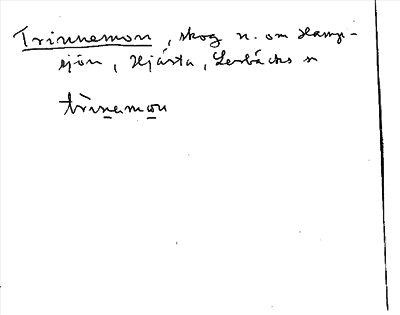 Trinnemon, skog n. om Hamp-
sjön, Hjärta, Lerbäcks sn
trinemon